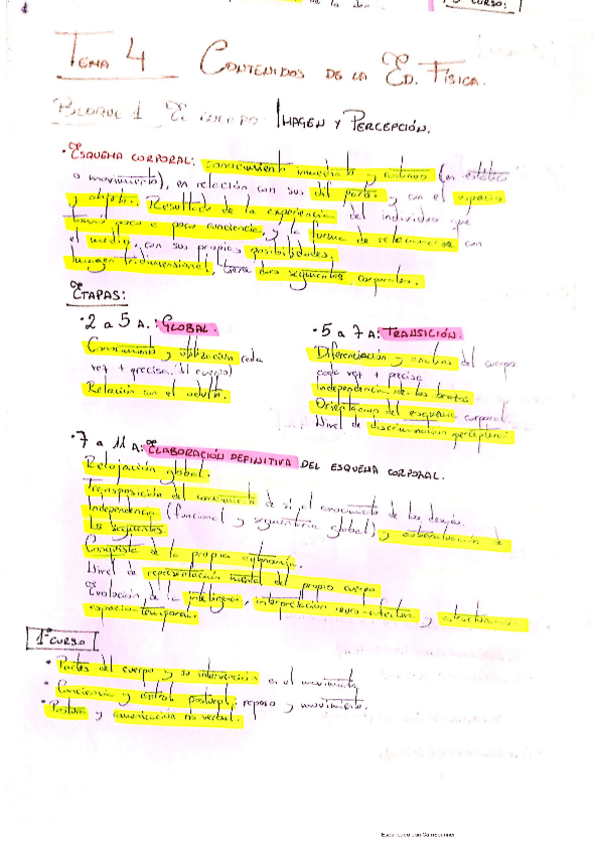 CURSO:
TEMA 4 CONTENIDOS DE LA ED. FÍSICA.
BLOQUE 1 El cuerpo: IMAGEN Y PERCEPCIÓN.
• ESQUEMA CORPORAL: conocimiento inmediato y continuo (en estática
o movimiento), en relación con sus dif partes y con el espacio
y objetos. Resultado de la experiencia del individuo que
toma poco a poco conciencia, y la forma de relacionarse con
el medio, con sus propias posibilidades.
Imagen tridimensional, tiene dos segmentos corporales.
ETAPAS:
• 2 a 5 A.: GLOBAL.
Conocimiento y utilización cada
vez + precisa del cuerpo
Relación con el adulto.
• 5 a 7 A: TRANSICIÓN.
Diferenciación y análisis del cuerpo
cada vez + precisa
Independencia de los brazos
Orientación del esquema corporal.
Nivel de discriminación perceptiva
• 7 a 11 A: ELABORACIÓN DEFINITIVA DEL ESQUEMA CORPORAL.
Relajación global.
Transposición del conocimiento de sí al conocimiento de los demás.
Independencia (funcional y segmentaria global) y de
los segmentos.
Conquista de la propia autonomía.
Nivel de representación mental del propio cuerpo
Evolución de la inteligencia, interpretación y estructuración
espacio-temporal.
1º CURSO
• Partes del cuerpo y su intervención en el movimiento
• Conciencia y control postural: reposo y movimiento.
• Postura y comunicación no verbal.
Escaneado con CamScanner